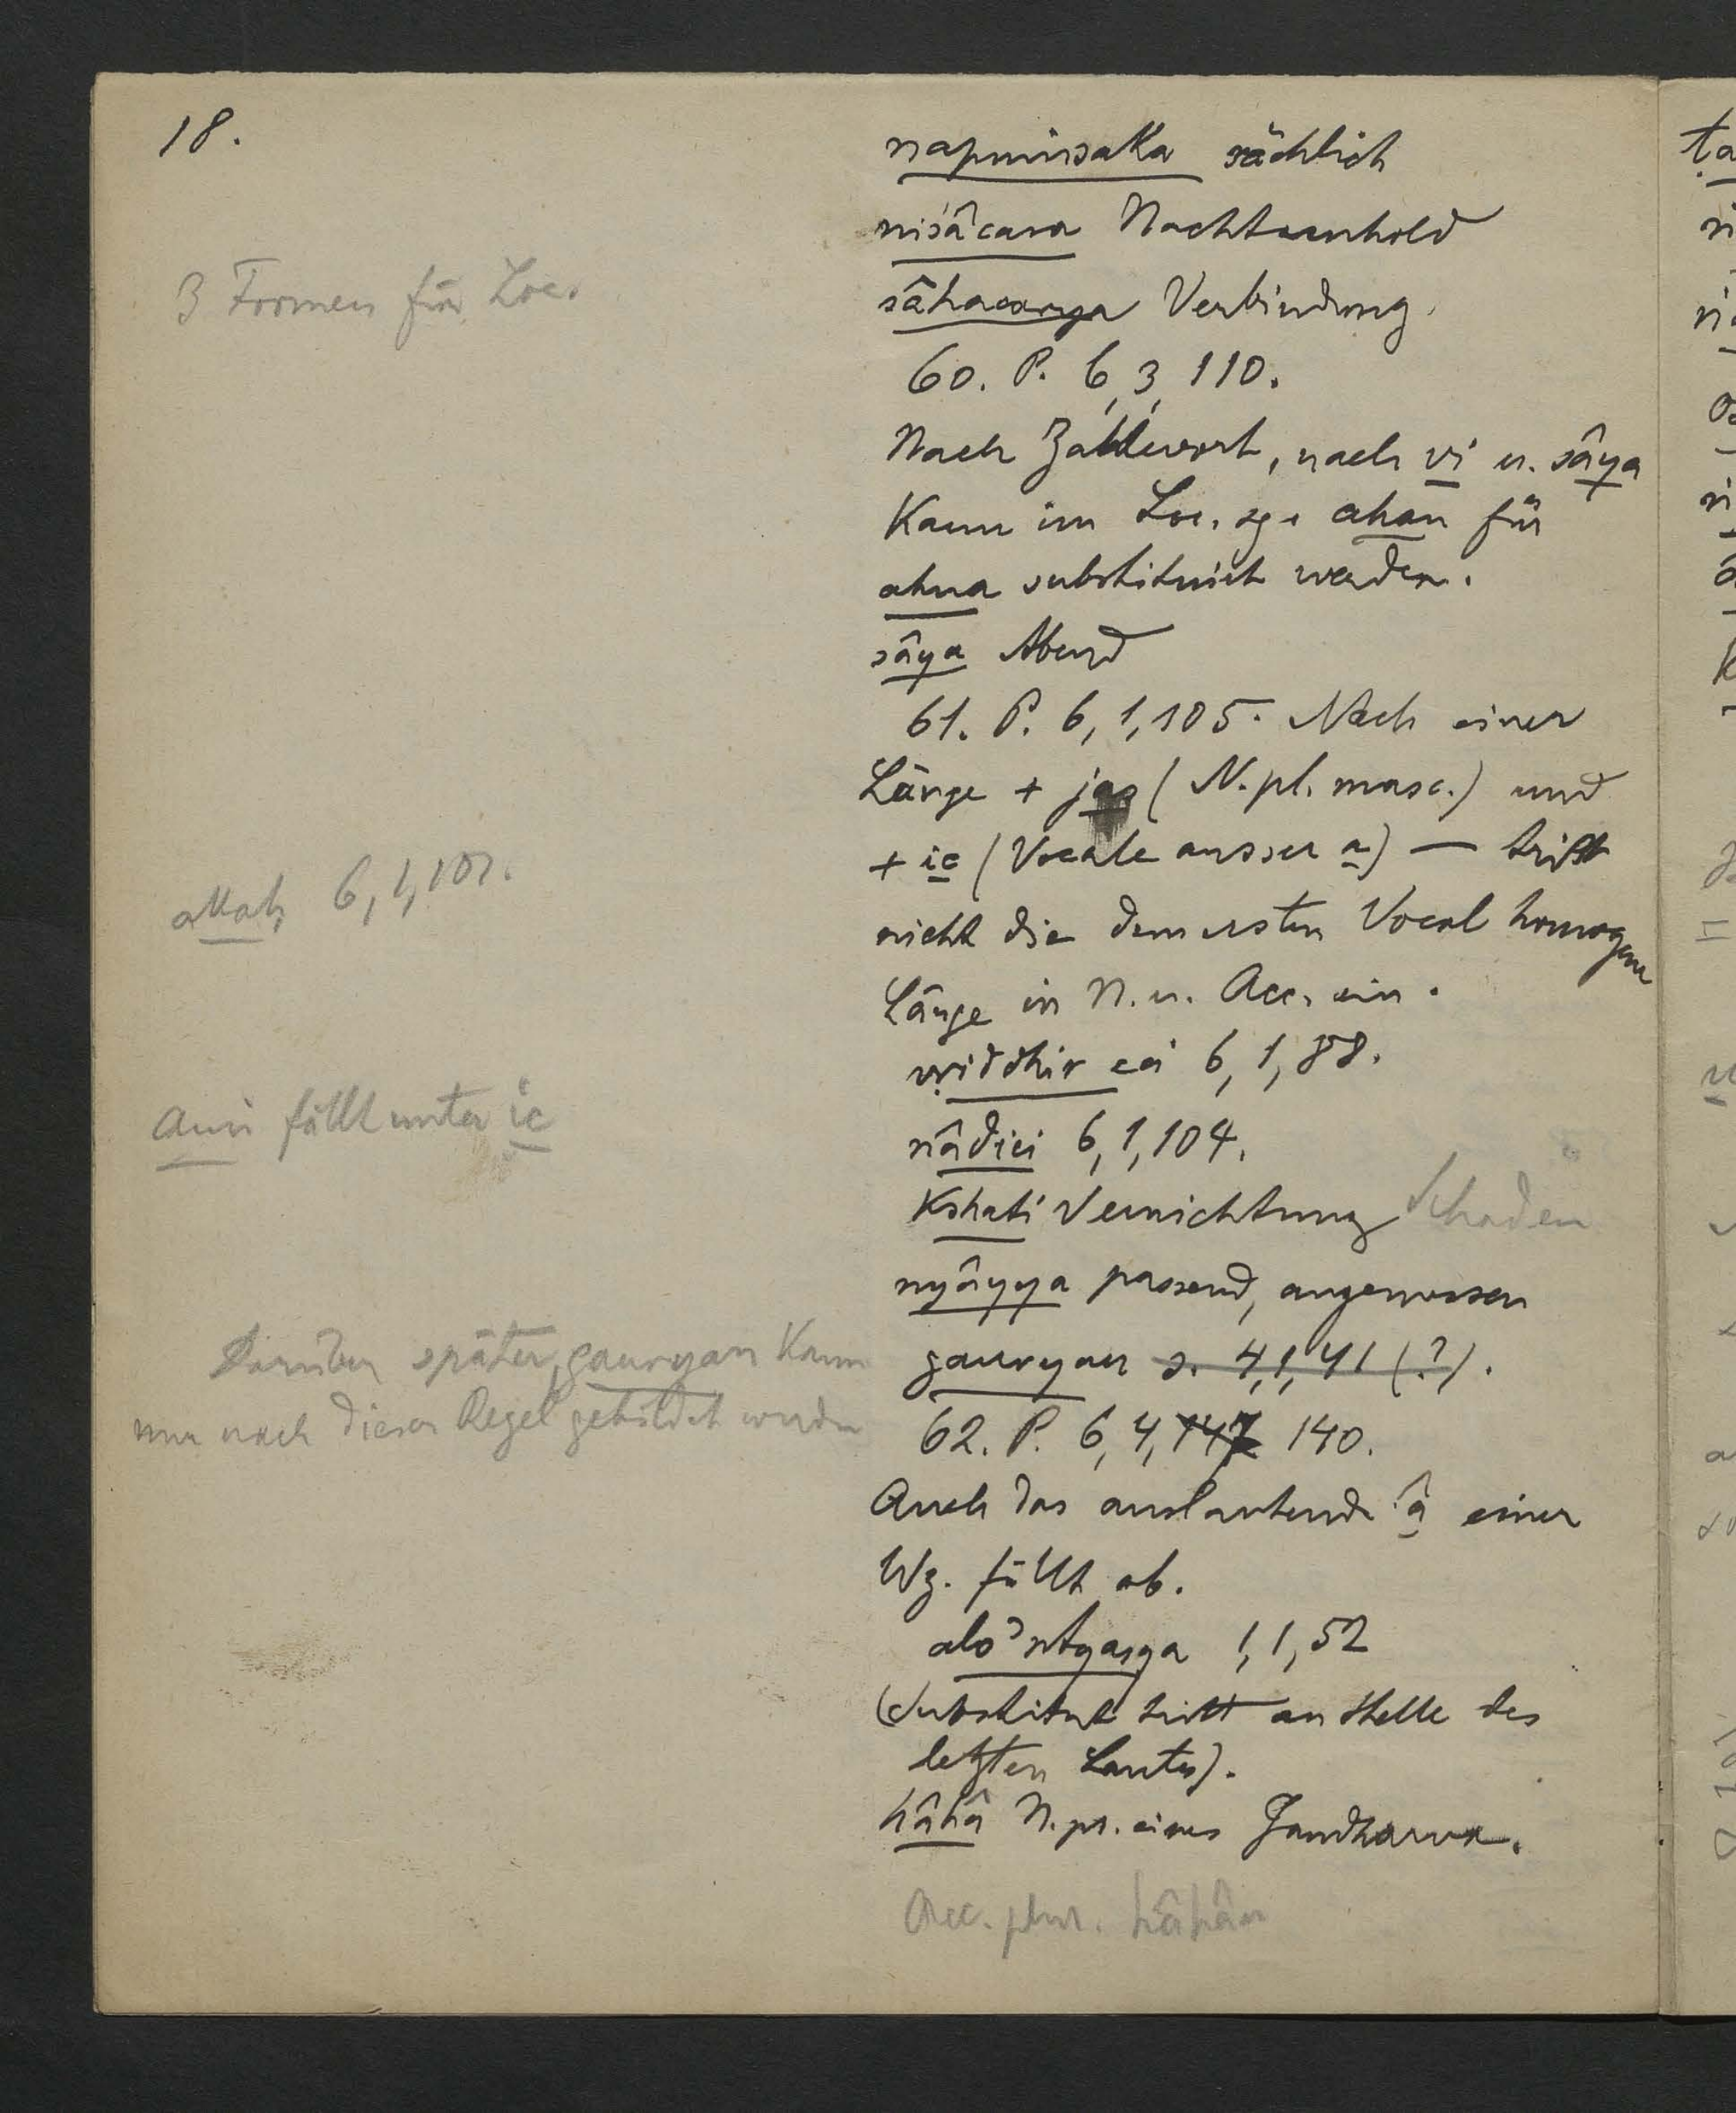 18.
napuṃsaka sächlich
niśâcara Nachtunhold
sâhacarya Verbindung.
3 Formen für Loc.
60. P. 6,3,110.
Nach Zahlwort, nach vi u. sâya
kann im Loc. sg. ahan für
ahna substituirt werden.
sâya Abend
61. P. 6,1,105. Nach einer
Länge + jas (N. pl. masc.) und
+ ic (Vocale ausser a) — tritt
akaḥ 6,1,101.
nicht die dem ersten Vocal homogene
Länge in N. u. Acc. ein.
vṛiddhir eci 6,1,88.
auu fällt unter ic
nâdici 6,1,104.
kshati Vernichtung Schaden
nyâyya passend, angemessen
Darüber später, gauryau kann
gauryau s. 4,1,41 (?).
nur nach dieser Regel gebildet werden
62. P. 6,4,147 140.
Auch das auslautende â einer
Wz. fällt ab.
alo'ntyasya 1,1,52
(Substitut tritt an Stelle des
letzten Lautes).
hâhâ N. pr. eines Gandharva.
Acc. plur. hâhân